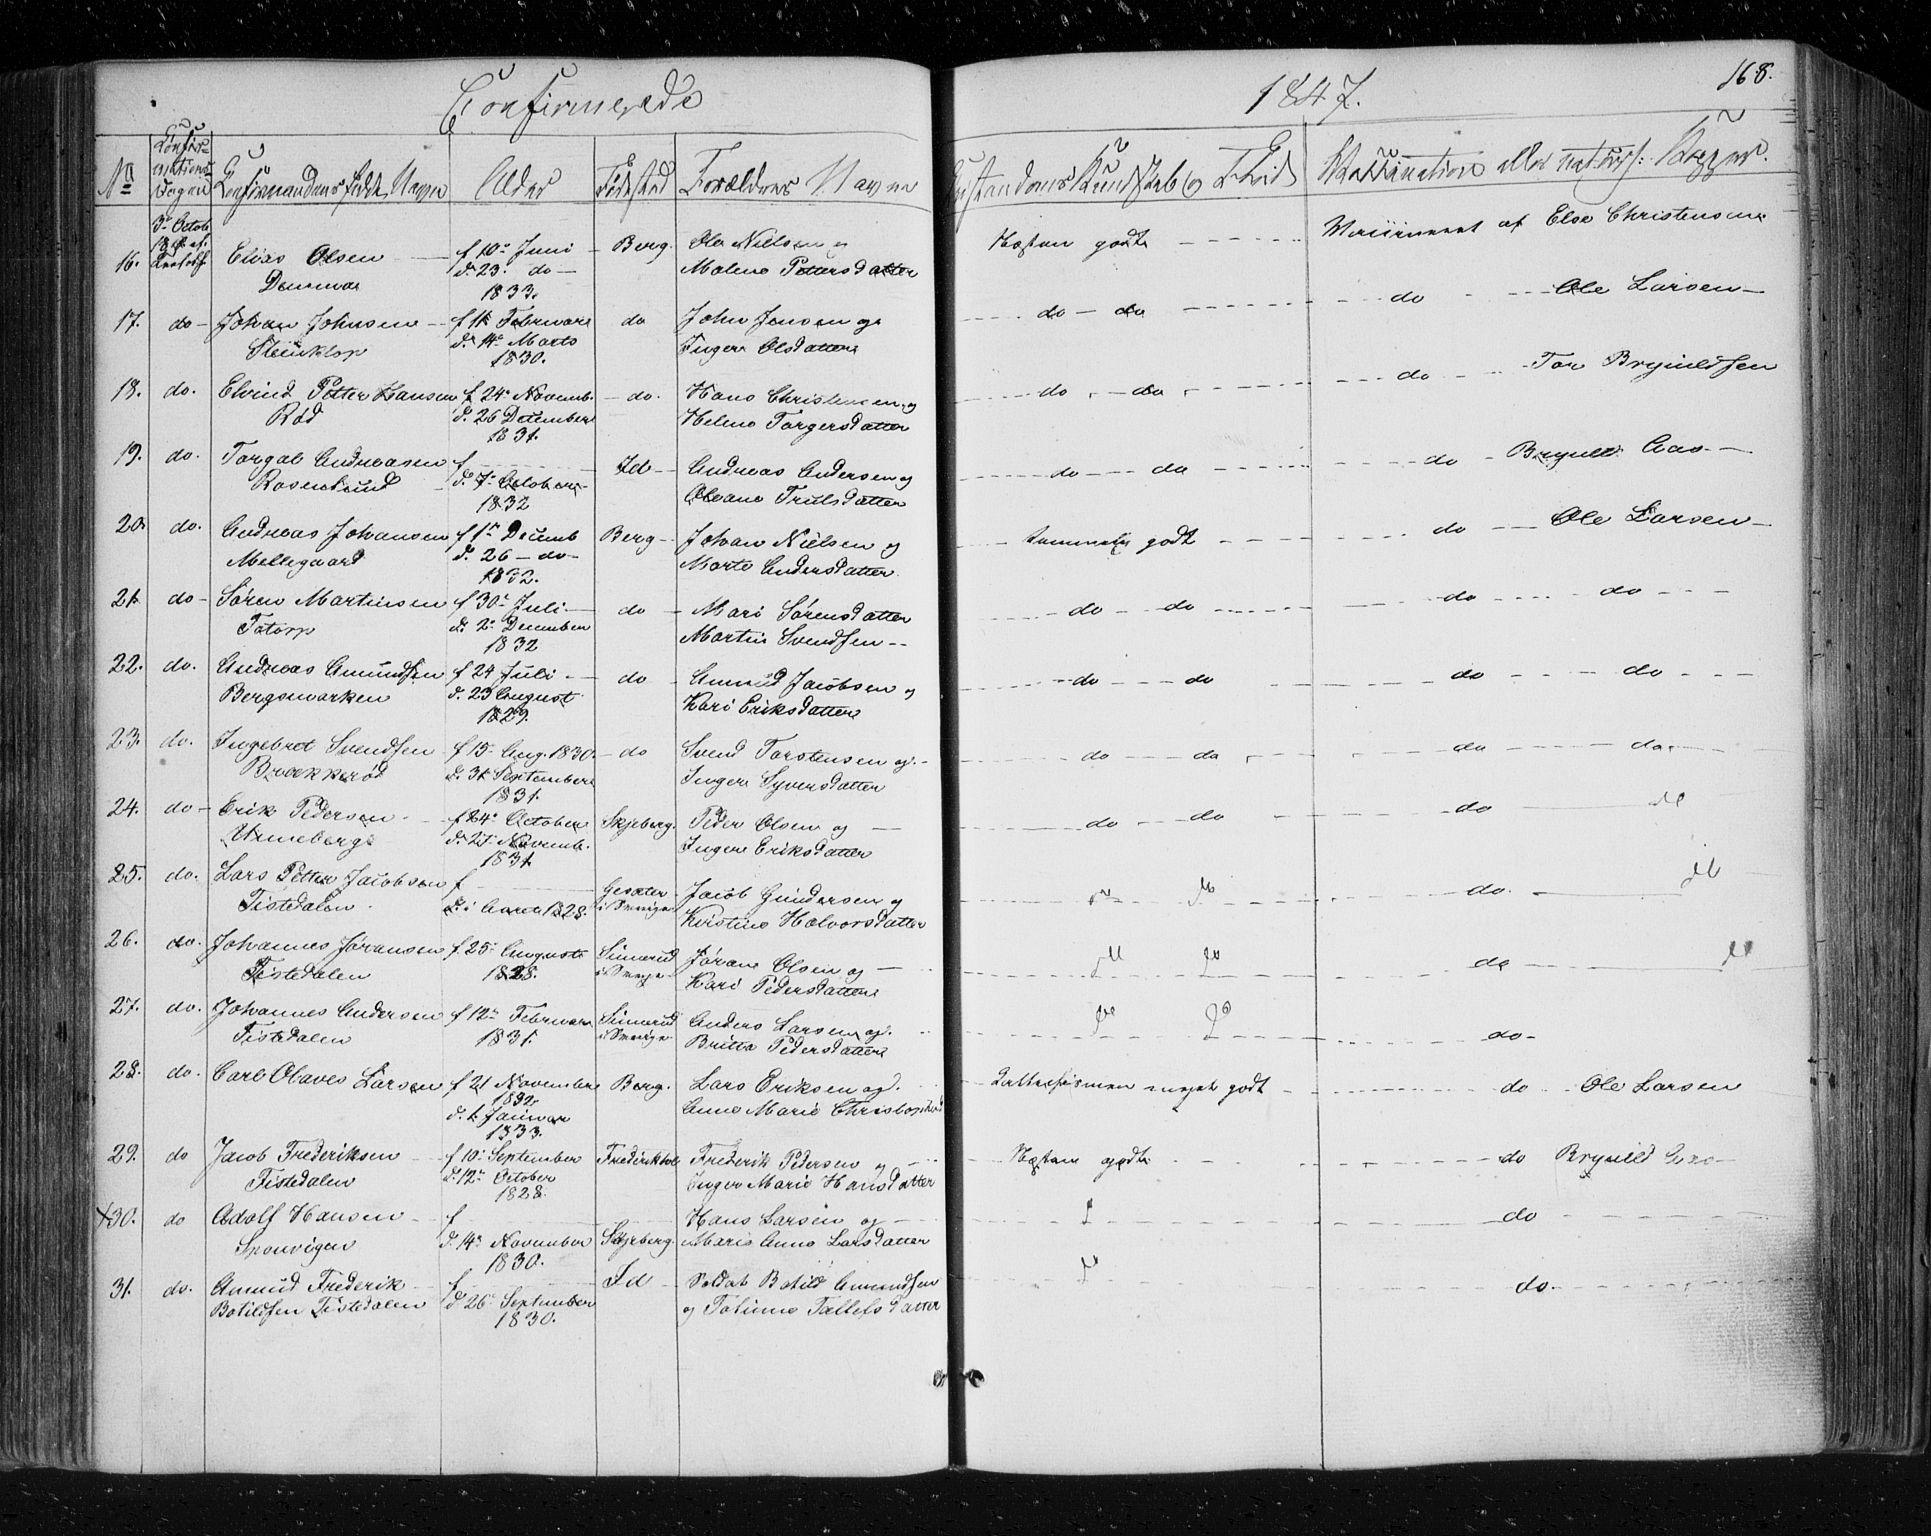 Confirmerede 1847. 168.
No Confirmations Dagen Confirmandens fulde Navn Alder Fødested Forældres Navne Kundskab og Flid Vakzination eller naturl: Kopper.
3die Octob
16. Elias Olsen f 10de Juni Berg. Ole Nielsen og Næsten godt Vaccineret af Else Christensen
d. 23. do Malene Pettersdatter
1833.
17. do Johan Johnsen f 11 Februar do John Jensen og do do do Ole Larsen
d. 14de Marts Inger Olsdatter
1830.
18. do. Elvind Petter Hansen f 24de Novemb. do. Hans Christensen og do do do Tor Brynildsen
Rød d. 26 Detember Helene Torgersdatter
1831.
19. do. Torgal Andreasen f Id Andreas Andersen og do do do Brynild Aas
Rosenlund d. 7de October Oleane Trulsdatter
1832
20. do. Andreas Johansen f 1ste Decemb Berg Johan Nielsen og temmelig godt do Ole Larsen
Møllegaard d. 26 do Marte Andersdatter
1832.
21. do Søren Martinsen f 30te Juli do Mari Sørensdatter do do do do
Tatorp d. 2den December Martin Svendsen
1832
22. do. Andreas Amundsen f 24 Juli do Amund Jacobsen og do do do do
Bergsmarken d. 23 August Kari Eriksdatter
1829.
23. do. Ingebret Svendsen f 15de Aug. 1830. do Svend Torstensen og do do do do
Brækkerød d. 31 September Inger Syversdatter
1831.
24. do Erik Pedersen f 24de October Skjeberg. Peder Olsen og do do do do
Unneberg d. 27de Novemb. Inger Eriksdatter
1831
25. do. Lars Petter Jacobsen f Gesæter Jacob Gundersen og do do do. do
Tistedalen. 1828. i Sverige Kirstine Halvorsdatter
26. do. Johannes Jøransen f 25de August Jøran Olsen og do do do do
Tistedalen 1828. i Sverige Kari Pedersdatter
27. do. Johannes Andersen f 12te Februar Anders Larsen og do do do
Tistedalen 1831. i Sverige Britta Pedersdatter
28. do. Carl Olaves Larsen f 21 November Berg. Lars Eriksen og meget godt do Ole Larsen
1832. Anne Marie
d. 1 Januar
1833.
29. do Jacob Frederiksen f 10de September Fredrikhal Frederik Pedersen og Næsten godt do Brynild Aas
Tistedalen d. 12te October Inger Marie Hansdatter
1828.
30. do Adolf Hansen f Hans Larsen og do
Sponvigen d. 14de November Skjeberg. Maris Anne Larsdatter
1830.
31. do. Amund Frederik f Id Soldat Botild Amundsen do do.
Botildsen Tistedalen d 26de September og Tollefsdatter
1830.